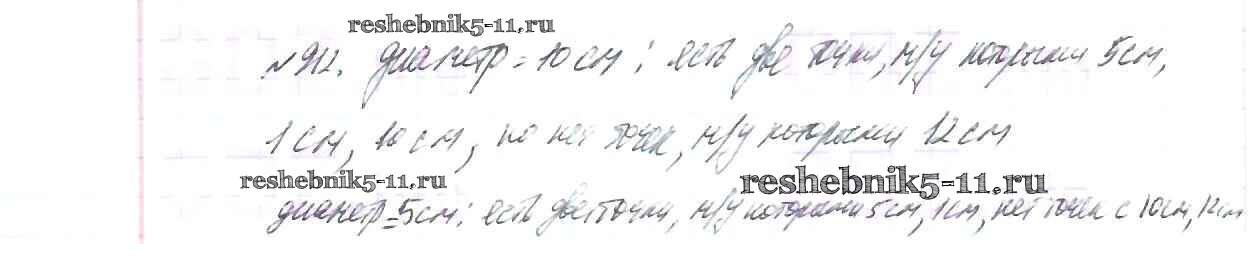 reshebnik5-11.ru
№912. диаметр = 10 см: есть две точки, м/у которыми 5 см,
1 см, 10 см, но нет точек, м/у которыми 12 см
reshebnik5-11.ru
reshebnik5-11.ru
диаметр = 5 см: есть две точки, м/у которыми 5 см, 1 см, нет точек с 10 см, 12 см